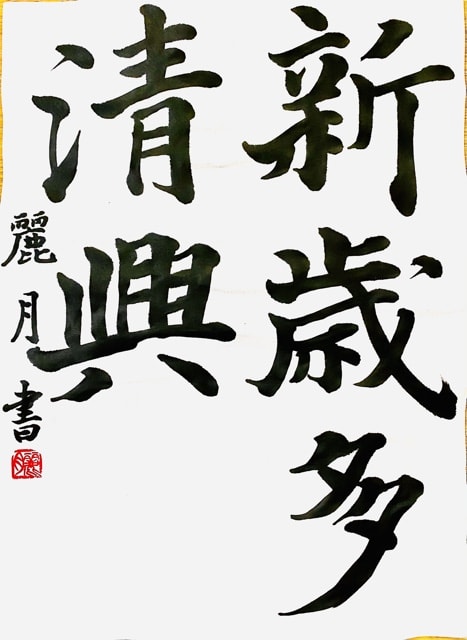 新歳多
清興
麗月書